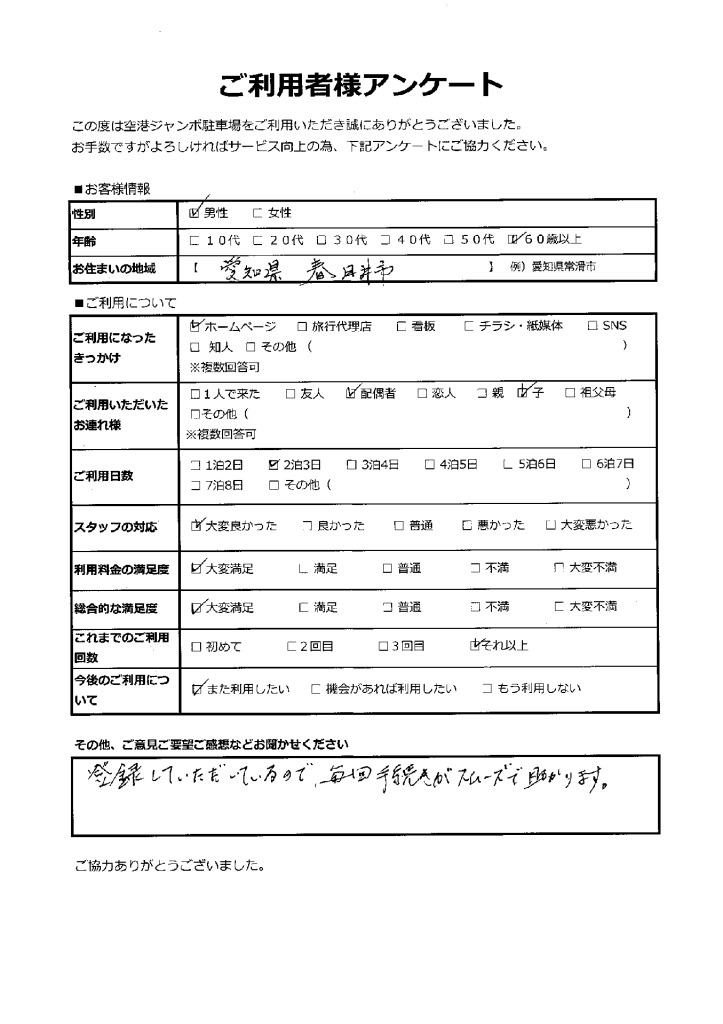 ご利用者様アンケート
この度は空港ジャンボ駐車場をご利用いただき誠にありがとうございました。
お手数ですがよろしければサービス向上の為、下記アンケートにご協力ください。
■お客様情報
性別 ☑男性 □女性
年齢 □10代 □20代 □30代 □40代 □50代 ☑60歳以上
お住まいの地域 【 愛知県 春日井市 】 例）愛知県常滑市
■ご利用について
ご利用になった
きっかけ
☑ホームページ □旅行代理店 □看板 □チラシ・紙媒体 □SNS
□知人 □その他（ ）
※複数回答可
ご利用いただいた
お連れ様
□1人で来た □友人 ☑配偶者 □恋人 □親 ☑子 □祖父母
□その他（ ）
※複数回答可
ご利用日数
□1泊2日 ☑2泊3日 □3泊4日 □4泊5日 □5泊6日 □6泊7日
□7泊8日 □その他（ ）
スタッフの対応 ☑大変良かった □良かった □普通 □悪かった □大変悪かった
利用料金の満足度 ☑大変満足 □満足 □普通 □不満 □大変不満
総合的な満足度 ☑大変満足 □満足 □普通 □不満 □大変不満
これまでのご利用
回数
□初めて □2回目 □3回目 ☑それ以上
今後のご利用につ
いて
☑また利用したい □機会があれば利用したい □もう利用しない
その他、ご意見ご要望ご感想などお聞かせください
登録していただいているので、毎回手続きがスムーズで助かります。
ご協力ありがとうございました。